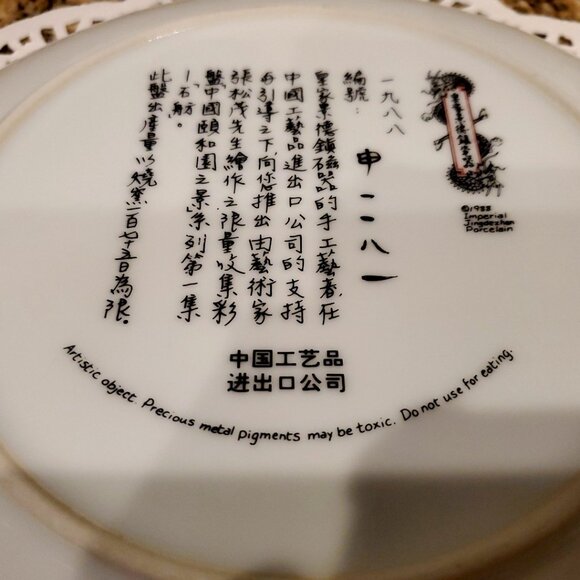 皇家景德鎮瓷器
©1988
Imperial
Jingdezhen
Porcelain
一九八八
編號: 申一二八一
皇家景德鎮磁器的手工藝者,在
中國工藝品進出口公司的支持
与引導之下,向您推出由藝術家
張松茂先生繪作之限量收集彩
盤中國頤和園之景系列第一集
/ 石舫。
此盤出產量以燒窯一百七十五日為限。
中国工艺品
进出口公司
Artistic object. Precious metal pigments may be toxic. Do not use for eating.